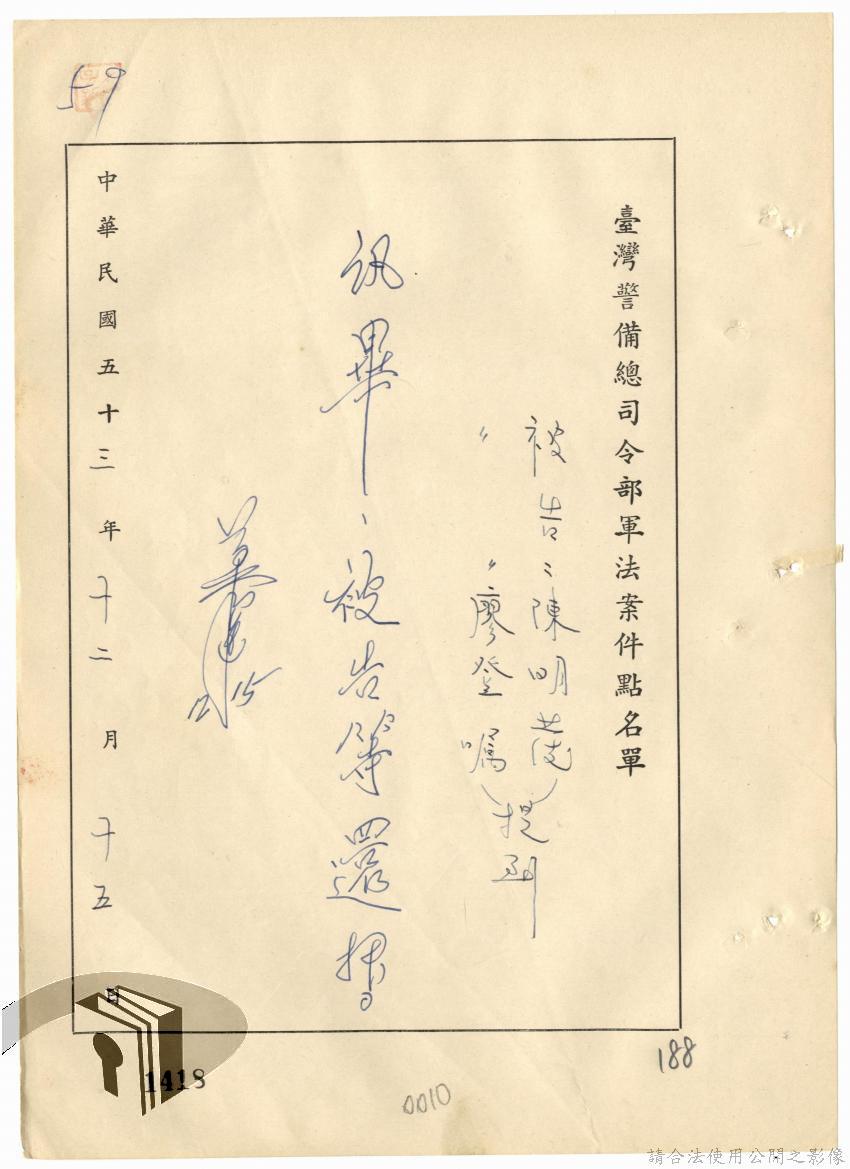 臺灣警備總司令部軍法案件點名單
被告:陳明茂
〃 〃廖登嘱
提到
訊畢、被告等還押
12/15
中華民國五十三年十二月十五日
59
188
1418
0010
請合法使用公開之影像